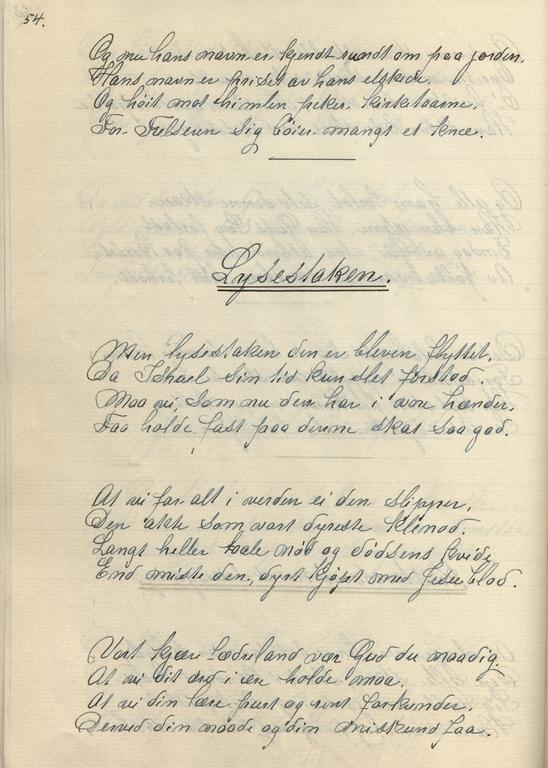 54.
Og nu hans navn er kjendt rundt om paa jorden.
Hans navn er priset av hans elskede
Og höit mot himlen peker kirketaarne.
For Frelseren sig böier mangt et knæ.
Lysestaken.
Men lysestaken den er bleven flyttet,
Da Ishael sin tid kun slet forstod.
Maa vi, som nu den har i vore hænder,
Faa holde fast paa denne skat saa god.
At vi for alt i verden ei den slipper,
Den akte som vort dyreste klenod.
Langt heller taale nöd og dödsens kvide
End miste den, dyrt kjöpt med Jesu blod.
Vort kjære fædreland vær Gud du naadig,
At vi dit ord i ære holde maa.
At vi din lære purt og rent forkynder.
Derved din naade og din miskund faa.